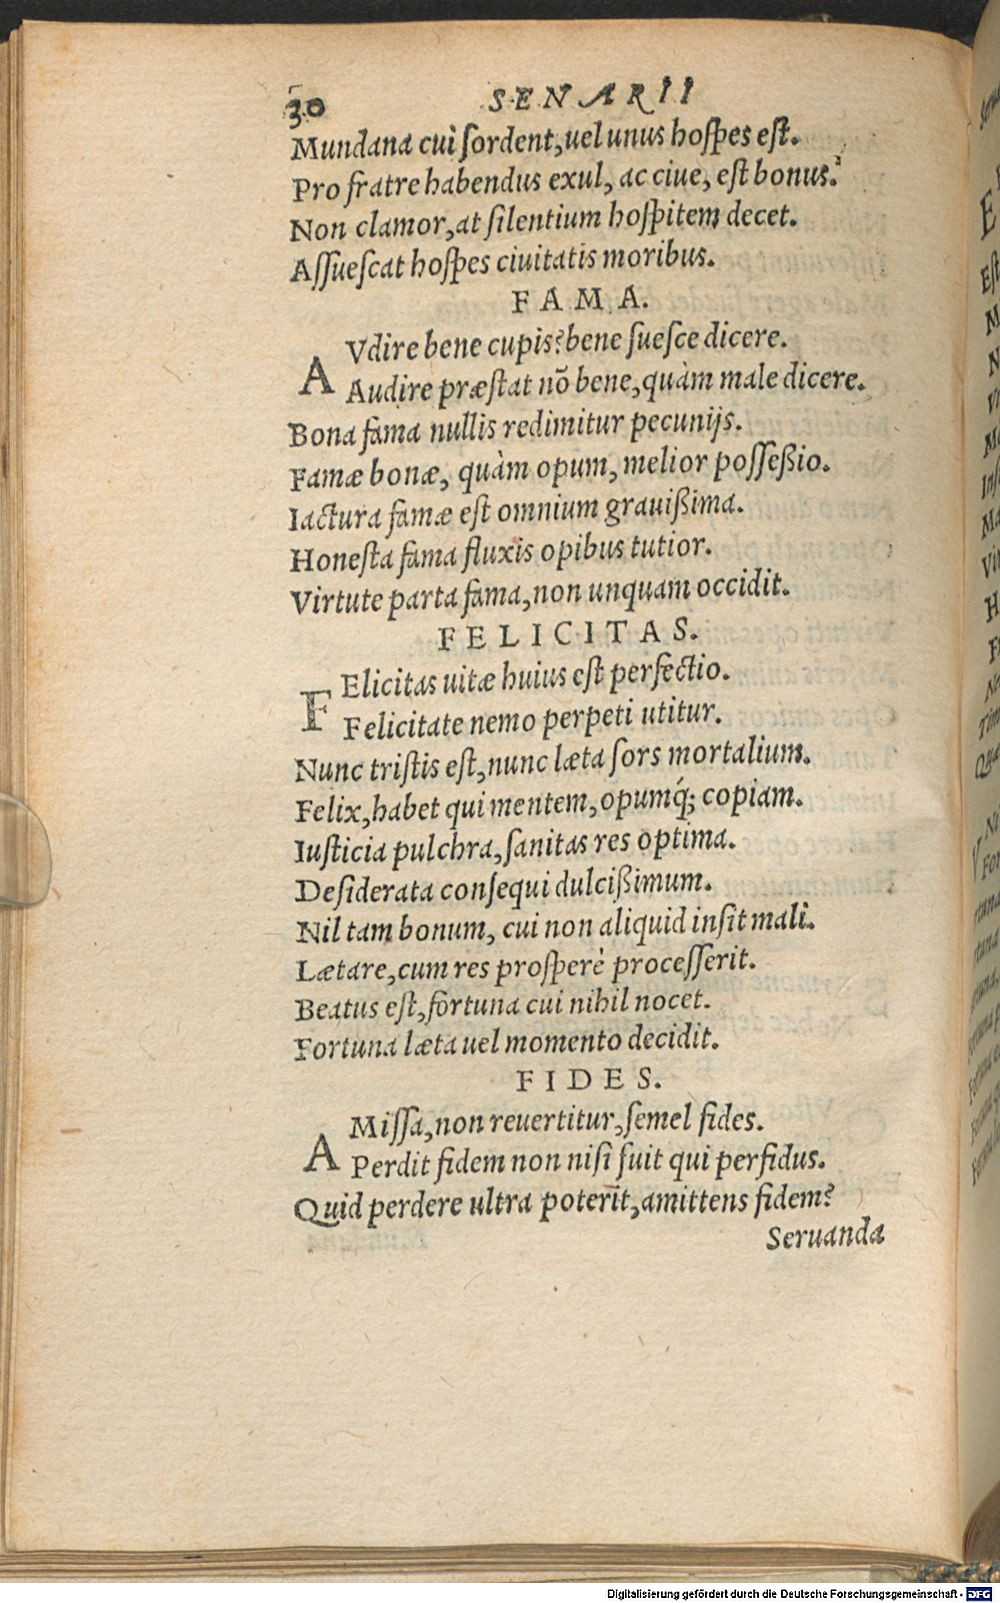 30 SENARII
Mundana cui ſordent, uel unus hoſpes eſt.
Pro fratre habendus exul, ac ciue, eſt bonus.
Non clamor, at ſilentium hoſpitem decet.
Aſſueſcat hoſpes ciuitatis moribus.
FAMA.
AVdire bene cupis? bene ſueſce dicere.
Audire præſtat nō bene, quàm male dicere.
Bona fama nullis redimitur pecunijs.
Famæ bonæ, quàm opum, melior poſſeßio.
Iactura famæ eſt omnium grauißima.
Honeſta fama fluxis opibus tutior.
Virtute parta fama, non unquam occidit.
FELICITAS.
FElicitas uitæ huius eſt perfectio.
Felicitate nemo perpeti utitur.
Nunc triſtis eſt, nunc læta ſors mortalium.
Felix, habet qui mentem, opumq́; copiam.
Iuſticia pulchra, ſanitas res optima.
Deſiderata conſequi dulcißimum.
Nil tam bonum, cui non aliquid inſit mali.
Lætare, cum res proſperè proceſſerit.
Beatus eſt, fortuna cui nihil nocet.
Fortuna læta uel momento decidit.
FIDES.
AMiſſa, non reuertitur, ſemel fides.
Perdit fidem non niſi fuit qui perfidus.
Quid perdere ultra poterit, amittens fidem?
Seruanda
Digitalisierung gefördert durch die Deutsche Forschungsgemeinschaft - DFG